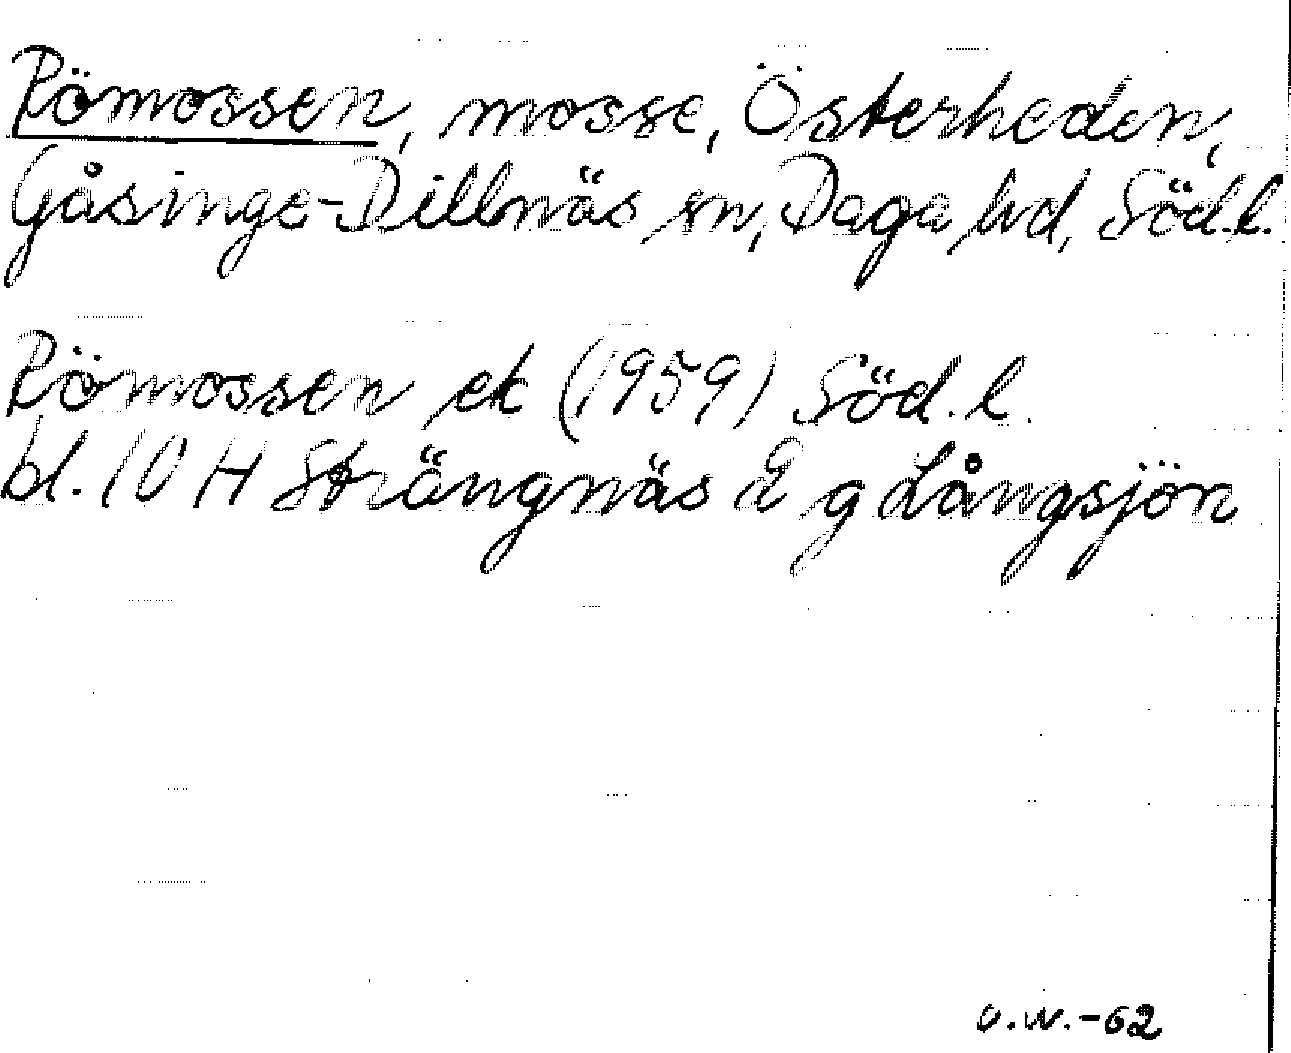 Römossen, mosse, Österheden,
Gåsinge-Dillnäs sn, Daga hd, Söd.l.
Römossen ek (1959) Söd. l.
bl. 10 H Strängnäs g Långsjön
u.w.-62